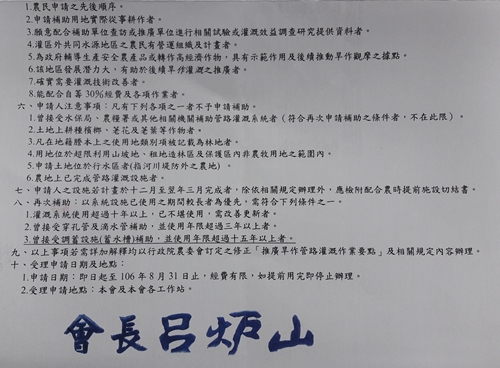 1.農民申請之先後順序。
2.申請補助用地實際從事耕作者。
3.願意配合補助單位查訪或推廣單位進行相關試驗或灌溉效益調查研究提供資料者。
4.灌區外共同水源地區之農民有營運組織及計畫者。
5.為政府輔導生產安全農產品或轉作高經濟作物，具有示範作用及後續推動旱作觀摩之據點。
6.該地區發展潛力大，有助於後續旱作灌溉之推廣者。
7.確實需要灌溉技術改善者。
8.能配合自籌30%經費及各項作業者。
六、申請人注意事項：凡有下列各項之一者不予申請補助。
1.曾接受水保局、農糧署或其他相關機關補助管路灌溉系統者（符合再次申請補助之條件者，不在此限）。
2.土地上耕種檳榔、荖花及荖葉等作物者。
3.凡在地籍謄本上之使用地類別項被記載為林地者。
4.用地位於超限利用山坡地、租地造林區及保護區內非農牧用地之範圍內。
5.申請土地位於行水區者(指河川堤防外之農地)。
6.農地上已完成管路灌溉設施者。
七、申請人之設施若計畫於十二月至翌年三月完成者，除依相關規定辦理外，應檢附配合農時提前施設切結書。
八、再次補助：以系統設施已使用之期間較長者為優先，需符合下列條件之一。
1.灌溉系統使用超過十年以上，已不堪使用，需改善更新者。
2.曾接受穿孔管及滴水管補助，並使用年限超過三年以上者。
3.曾接受調蓄設施(蓄水槽)補助，並使用年限超過十五年以上者。
九、以上事項若需詳加解釋均以行政院農委會訂定之修正「推廣旱作管路灌溉作業要點」及相關規定內容辦理。
十、受理申請日期及地點：
1.申請日期：即日起至 106 年 8 月 31 日止，經費有限，如提前用完即停止辦理。
2.受理申請地點：本會及本會各工作站。
會長呂炉山